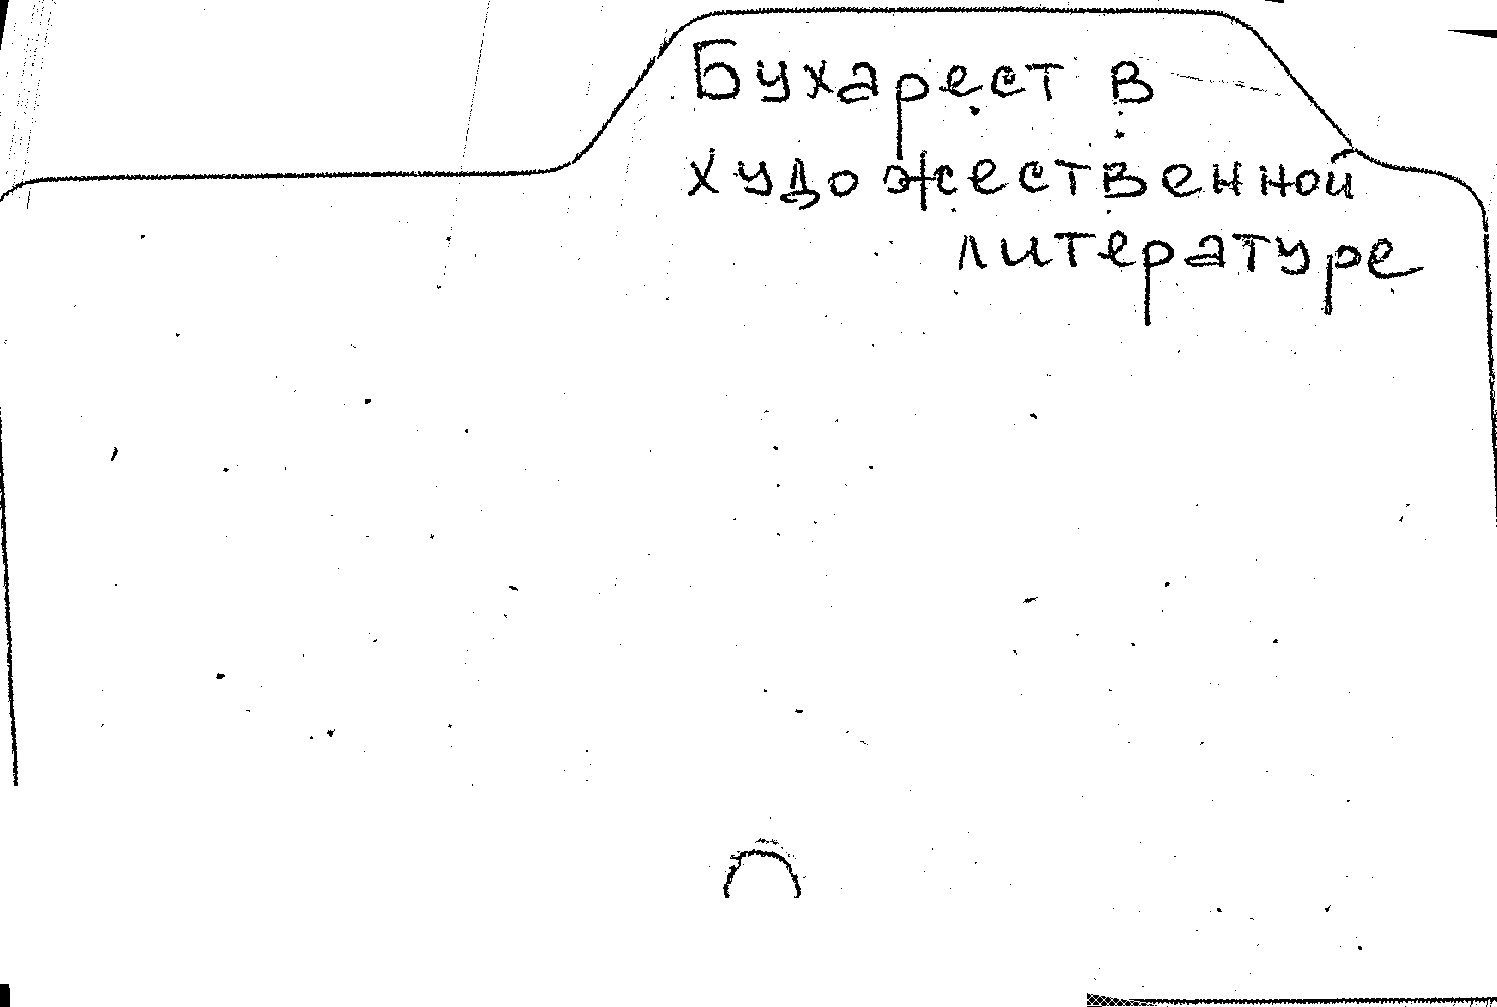 Бухарест в
художественной
литературе